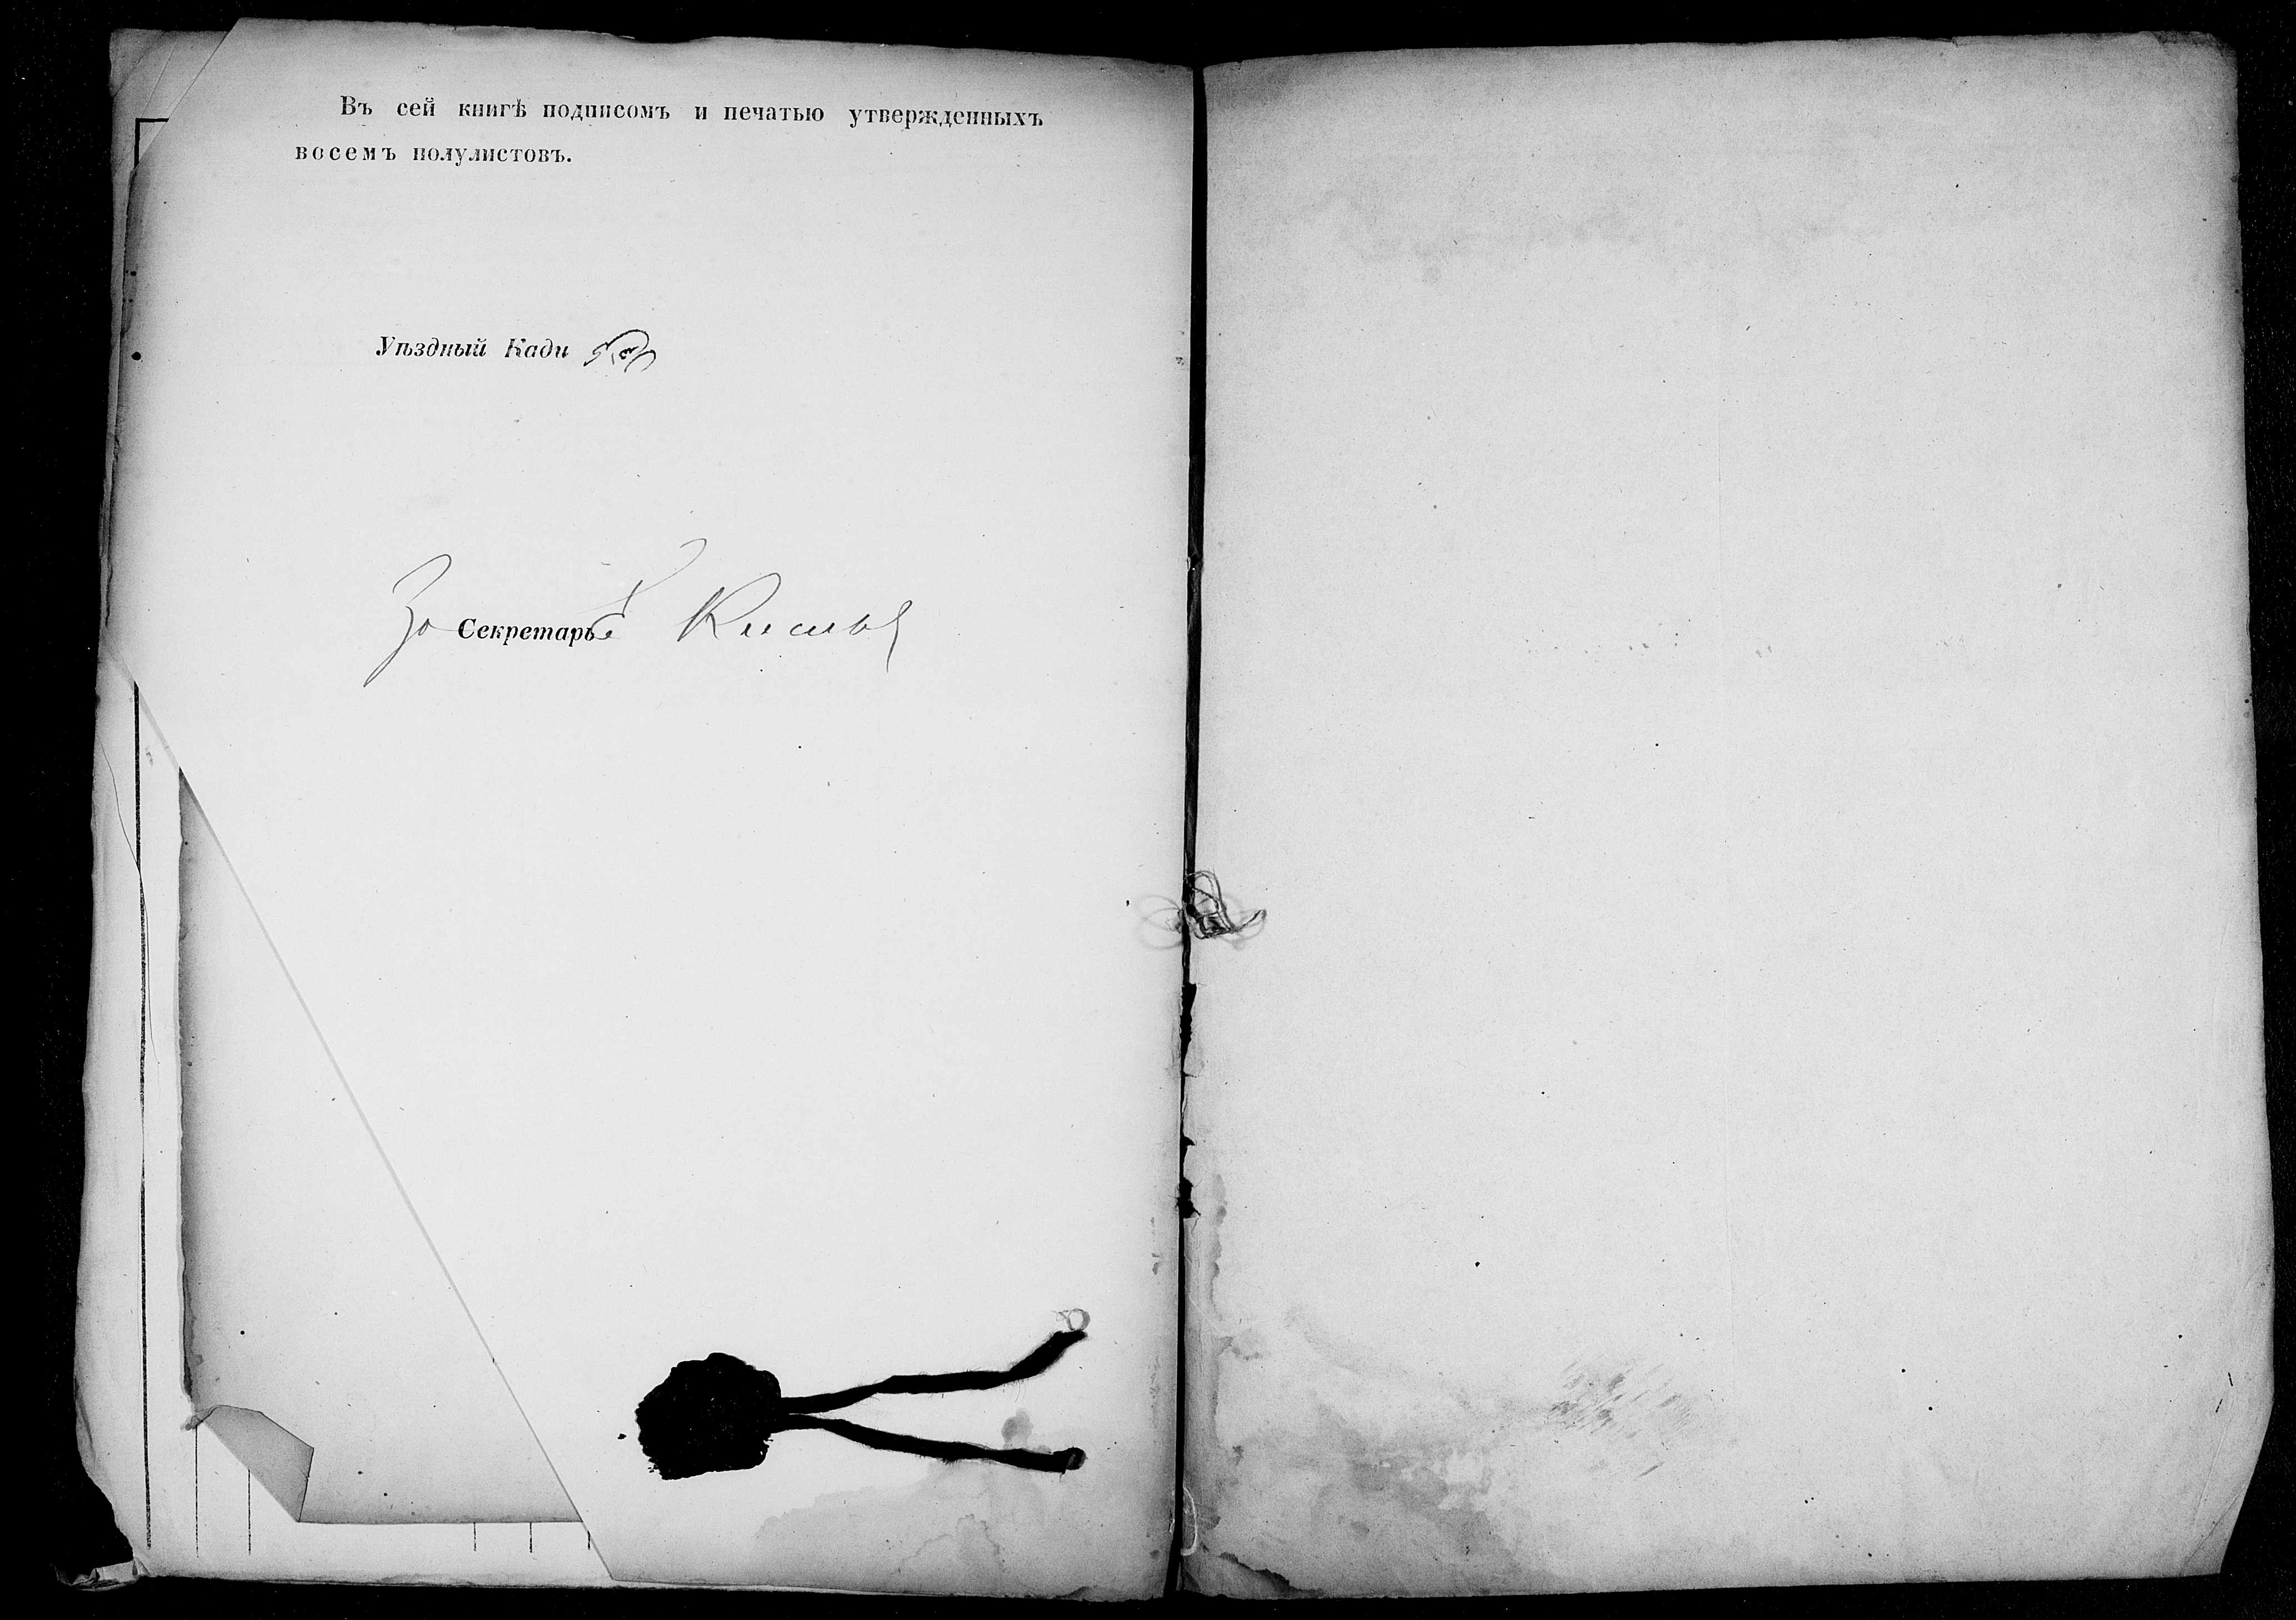 Въ сей книгѣ подписомъ и печатью утвержденныхъ
восемъ полулистовъ.
Уѣздный Кади
За Секретарь